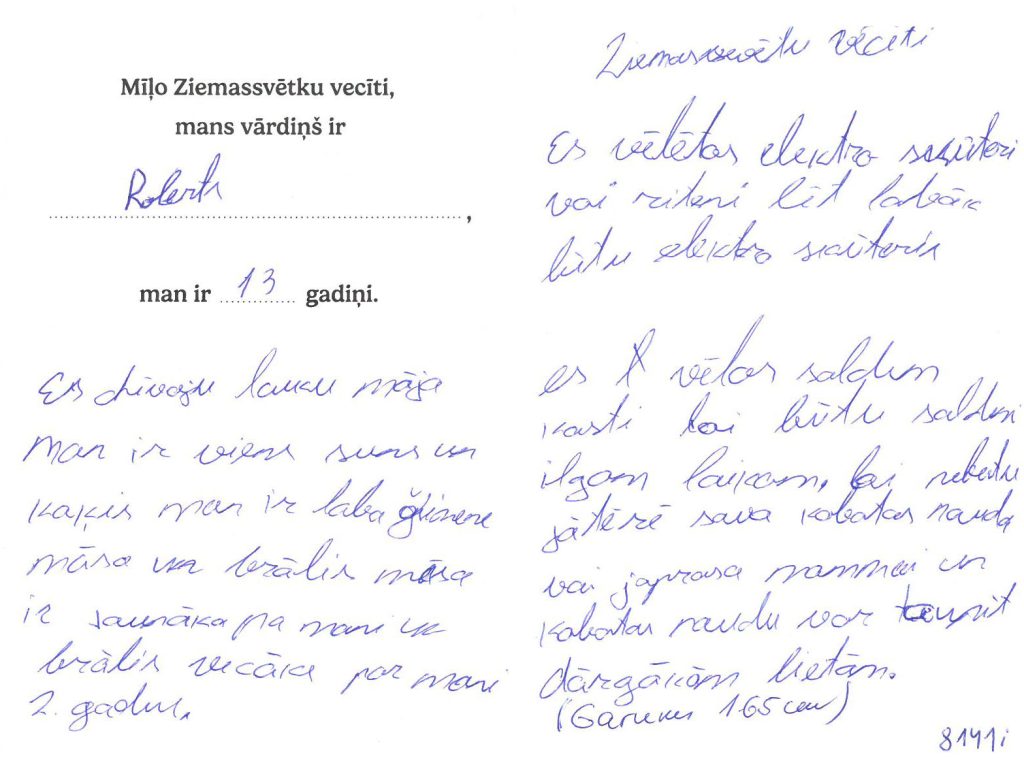 Mīļo Ziemassvētku vecīti,
mans vārdiņš ir
Roberts
,
man ir 13 gadiņi.
Es dzīvoju lauku māja
man ir viens suns un
kaķis man ir laba ģimene
māsa un brālis māsa
ir jaunāka pa mani un
brālis vecāks par mani
2. gadus.
Ziemassvētu vēcīti
Es vēlētos elektro skūteri
vai riteni bēt labāk
būtu elektro skūteris
es vēlos saldumu
kasti lai būtu saldumi
ilgam laikam, lai nebūtu
jātērē sava kabatas nauda
vai japrasa mammai un
kabatas naudu var taupīt
dārgākām lietām.
(Garums 165 cm)
8141i